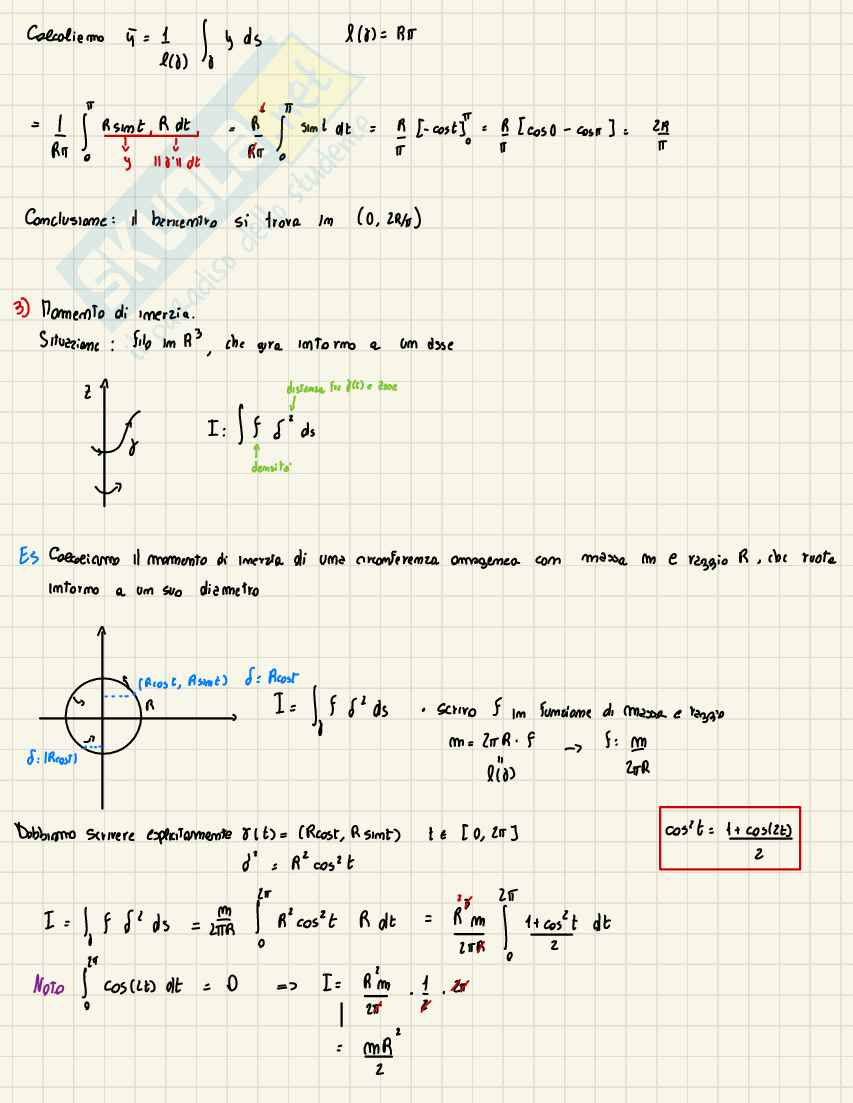 Calcoliamo ȳ = 1/l(γ) ∫_γ y ds l(γ) = Rπ
= 1/Rπ ∫_0^π R sint, R dt = R/Rπ ∫_0^π sint dt = R/π [-cost]_0^π = R/π [cos0 - cosπ] = 2R/π
y ||γ'|| dt
Conclusione: il baricentro si trova in (0, 2R/π)
3) Momento di inerzia.
Situazione: filo in R³, che gira intorno a un asse
distanza fra γ(t) e l'asse
z γ I: ∫ f δ² ds
densità
Es Calcoliamo il momento di inerzia di una circonferenza omogenea con massa m e raggio R, che ruota
intorno a un suo diametro
(Rcost, Rsint) δ = Rcost
R I = ∫_γ f δ² ds · scrivo f in funzione di massa e raggio
δ: |Rcost| m = 2πR · f -> f: m/2πR
l(γ)
Dobbiamo scrivere esplicitamente γ(t) = (Rcost, R sint) t ∈ [0, 2π] cos²t = 1 + cos(2t)/2
δ² = R² cos²t
I = ∫_γ f δ² ds = m/2πR ∫_0^2π R² cos²t R dt = R³m/2πR ∫_0^2π 1 + cos²t/2 dt
Noto ∫_0^2π cos(2t) dt = 0 => I = R²m/2π · 1/2 · 2π
= mR²/2
SKUOLA.net
il paradiso dello studente